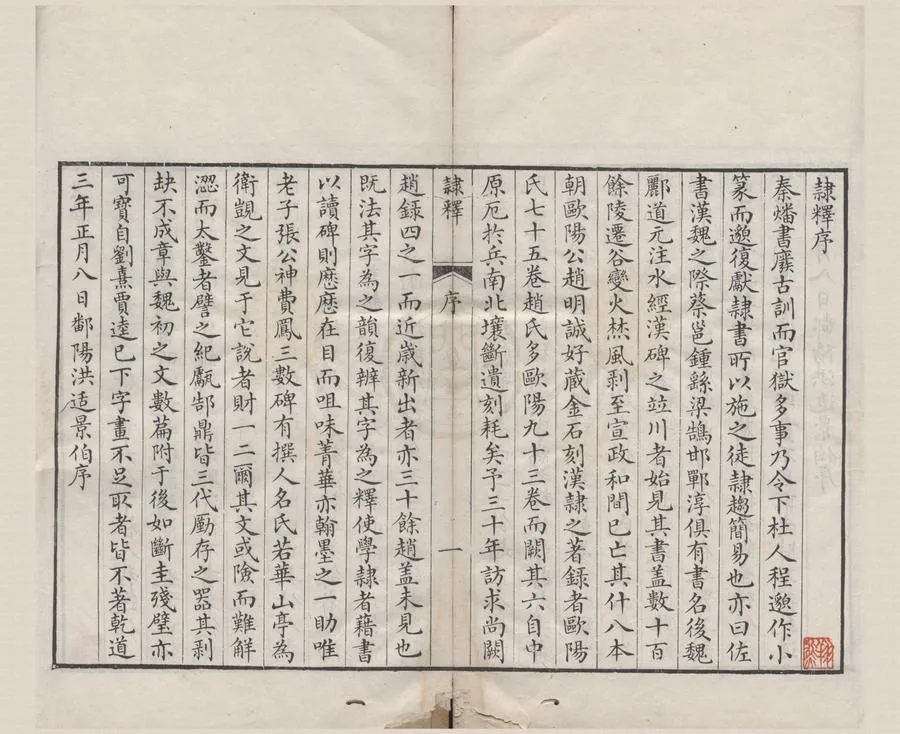 隷釋序
秦燔書廢古訓而官獄多事乃令下杜人程邈作小
篆而邈復獻隷書所以施之徒隷趨簡易也亦曰佐
書漢魏之際蔡邕鍾繇梁鵠邯鄲淳俱有書名後魏
酈道元注水經漢碑之竝川者始見其書蓋數十百
餘陵遷谷變火焚風剥至宣政和間已亡其什八本
朝歐陽公趙明誠好蔵金石刻漢隷之著錄者歐陽
氏七十五卷趙氏多歐陽九十三卷而闕其六自中
原厄於兵南北壤斷遺刻耗矣予三十年訪求尚闕
隷釋 序 一
趙錄四之一而近歲新出者亦三十餘趙蓋未見也
既法其字為之韻復辨其字為之釋使學隷者藉書
以讀碑則歷歷在目而咀味菁華亦翰墨之一助唯
老子張公神費鳳三數碑有撰人名氏若華山亭為
衛覬之文見于它說者財一二爾其文或險而難解
澀而太鑿者譬之紀甗郜鼎皆三代劚存之器其剥
缺不成章與魏初之文數篇附于後如斷圭殘璧亦
可寶自劉熹賈逵已下字畫不足取者皆不著乾道
三年正月八日鄱陽洪适景伯序